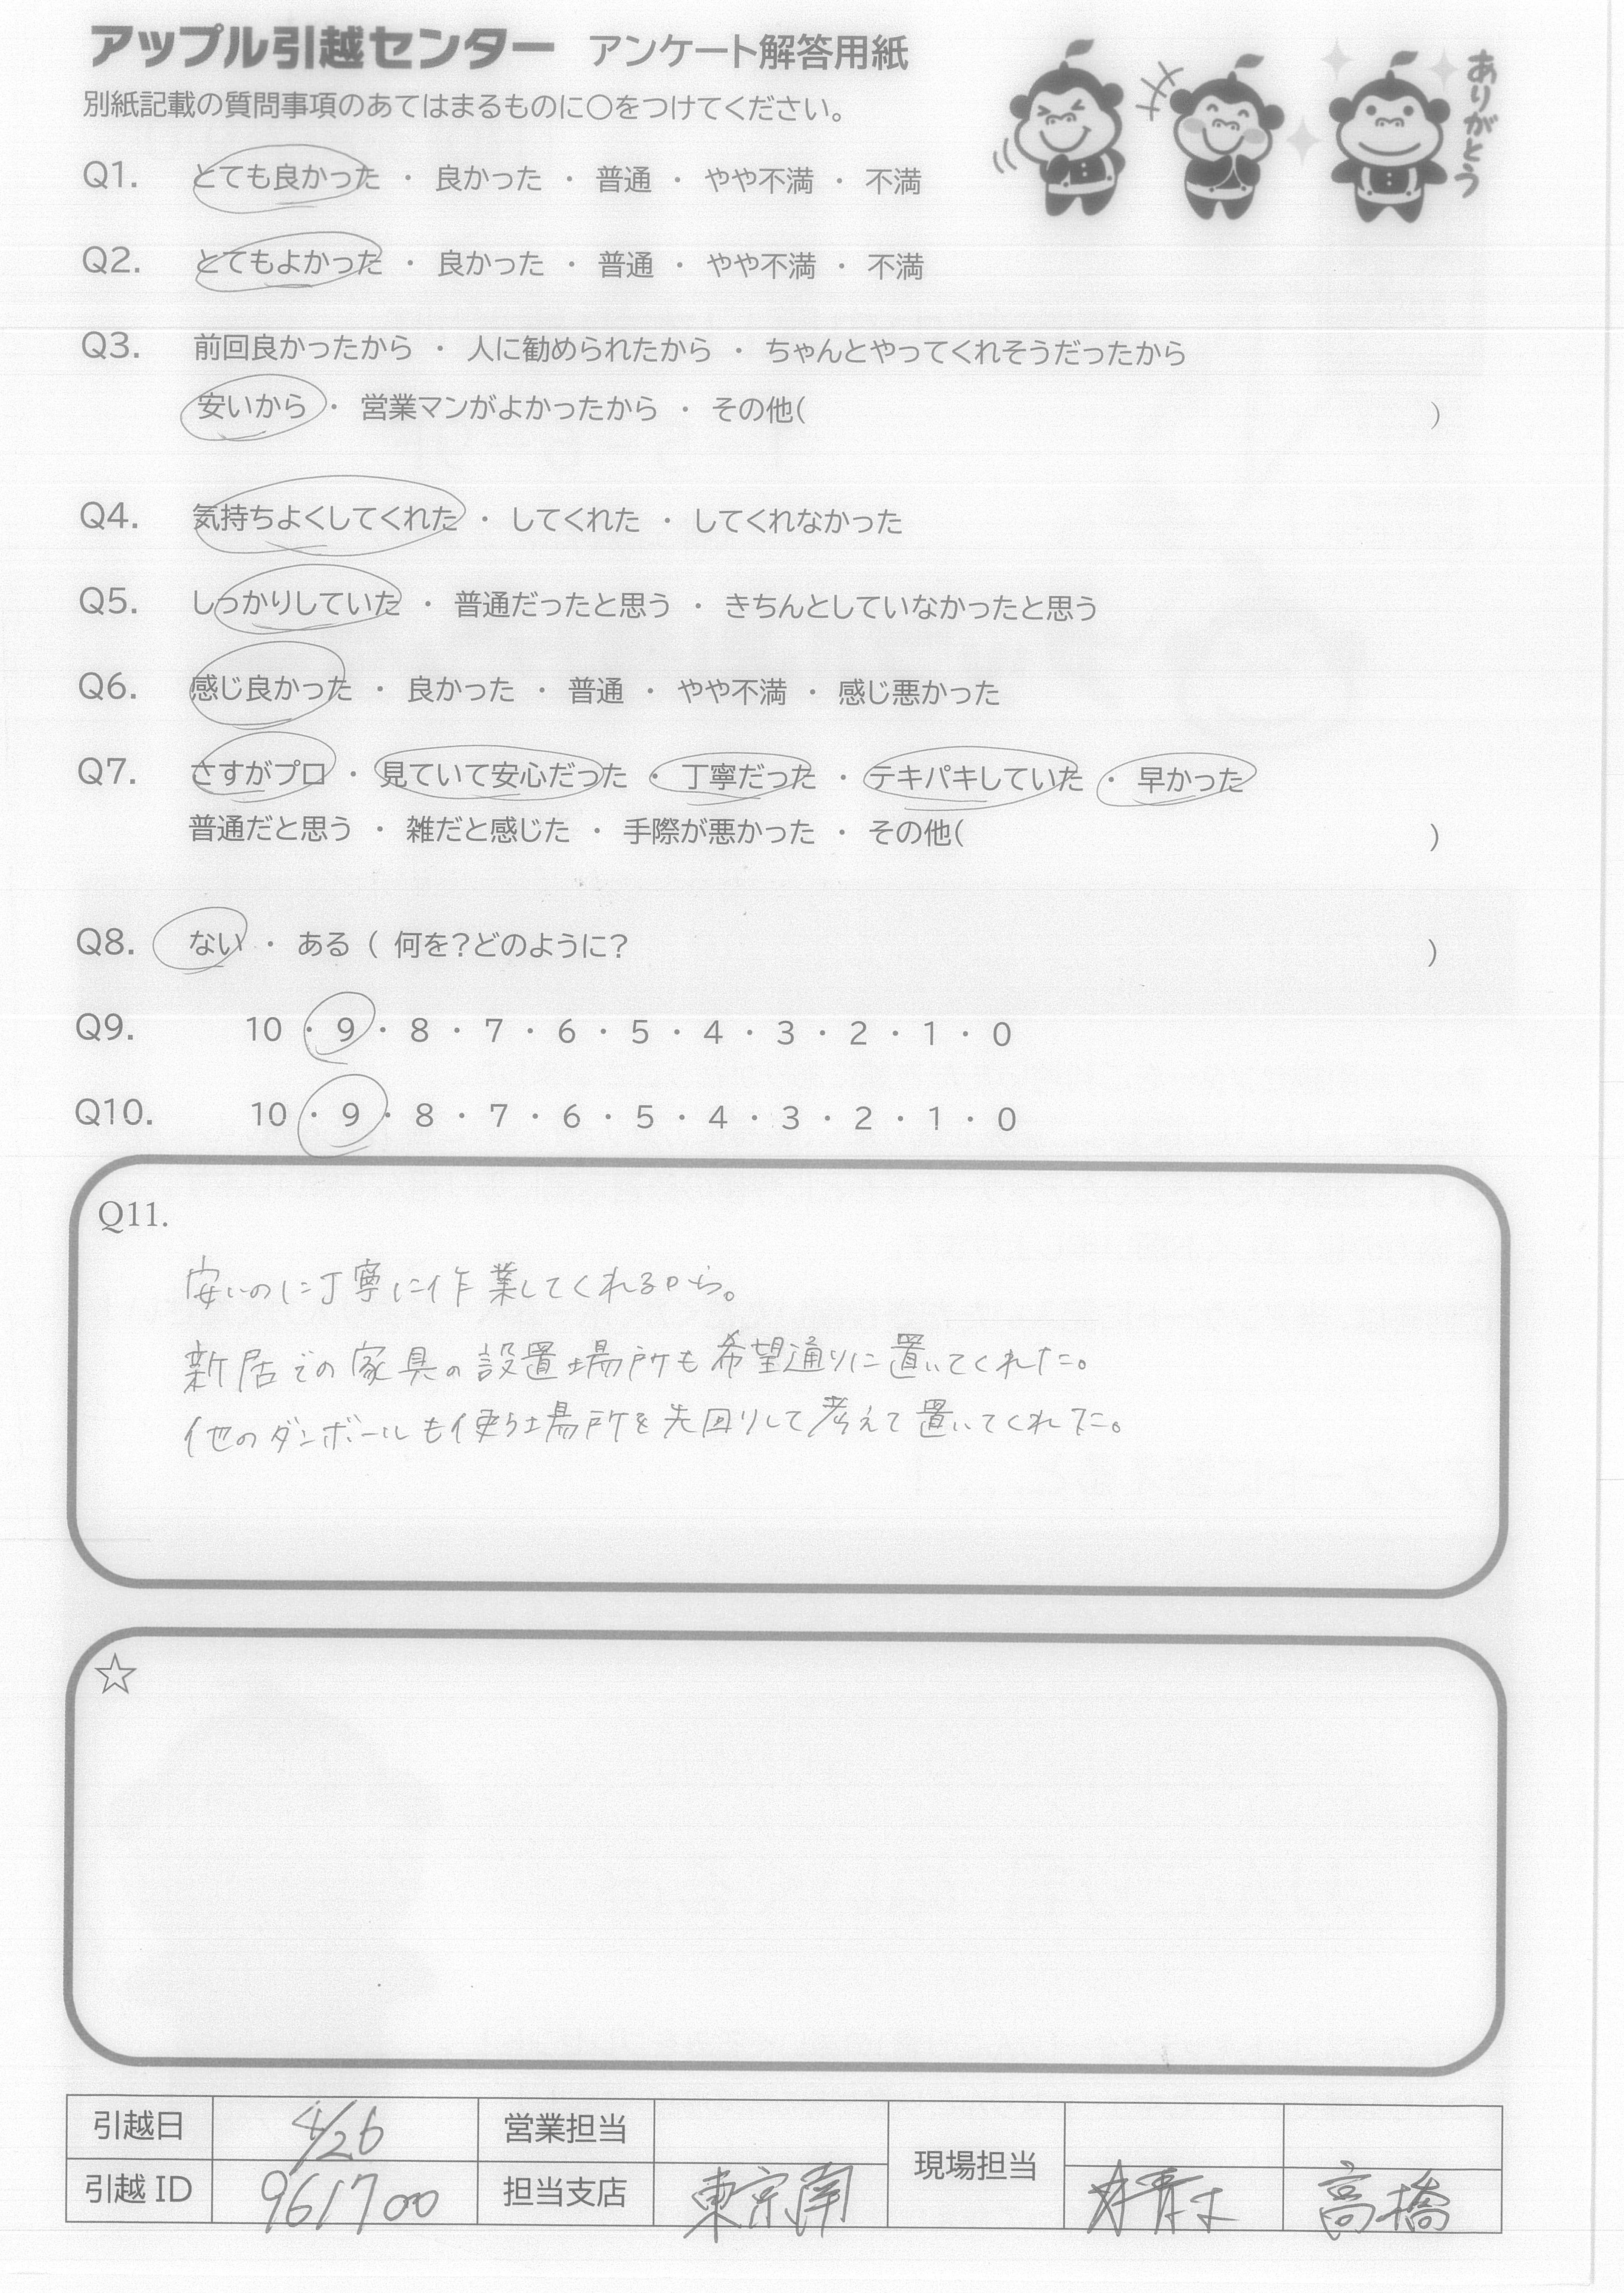 アップル引越センター アンケート解答用紙
別紙記載の質問事項のあてはまるものに〇をつけてください。
ありがとう
Q1. とても良かった ・ 良かった ・ 普通 ・ やや不満 ・ 不満
Q2. とてもよかった ・ 良かった ・ 普通 ・ やや不満 ・ 不満
Q3. 前回良かったから ・ 人に勧められたから ・ ちゃんとやってくれそうだったから
安いから ・ 営業マンがよかったから ・ その他( )
Q4. 気持ちよくしてくれた ・ してくれた ・ してくれなかった
Q5. しっかりしていた ・ 普通だったと思う ・ きちんとしていなかったと思う
Q6. 感じ良かった ・ 良かった ・ 普通 ・ やや不満 ・ 感じ悪かった
Q7. さすがプロ ・ 見ていて安心だった ・ 丁寧だった ・ テキパキしていた ・ 早かった
普通だと思う ・ 雑だと感じた ・ 手際が悪かった ・ その他( )
Q8. ない ・ ある ( 何を?どのように? )
Q9. 10 ・ 9 ・ 8 ・ 7 ・ 6 ・ 5 ・ 4 ・ 3 ・ 2 ・ 1 ・ 0
Q10. 10 ・ 9 ・ 8 ・ 7 ・ 6 ・ 5 ・ 4 ・ 3 ・ 2 ・ 1 ・ 0
Q11.
安いのに丁寧に作業してくれるから。
新居での家具の設置場所も希望通りに置いてくれた。
他のダンボールも使う場所を先回りして考えて置いてくれた。
☆
引越日 4/26 営業担当 現場担当
引越 ID 961700 担当支店 東京南 高橋